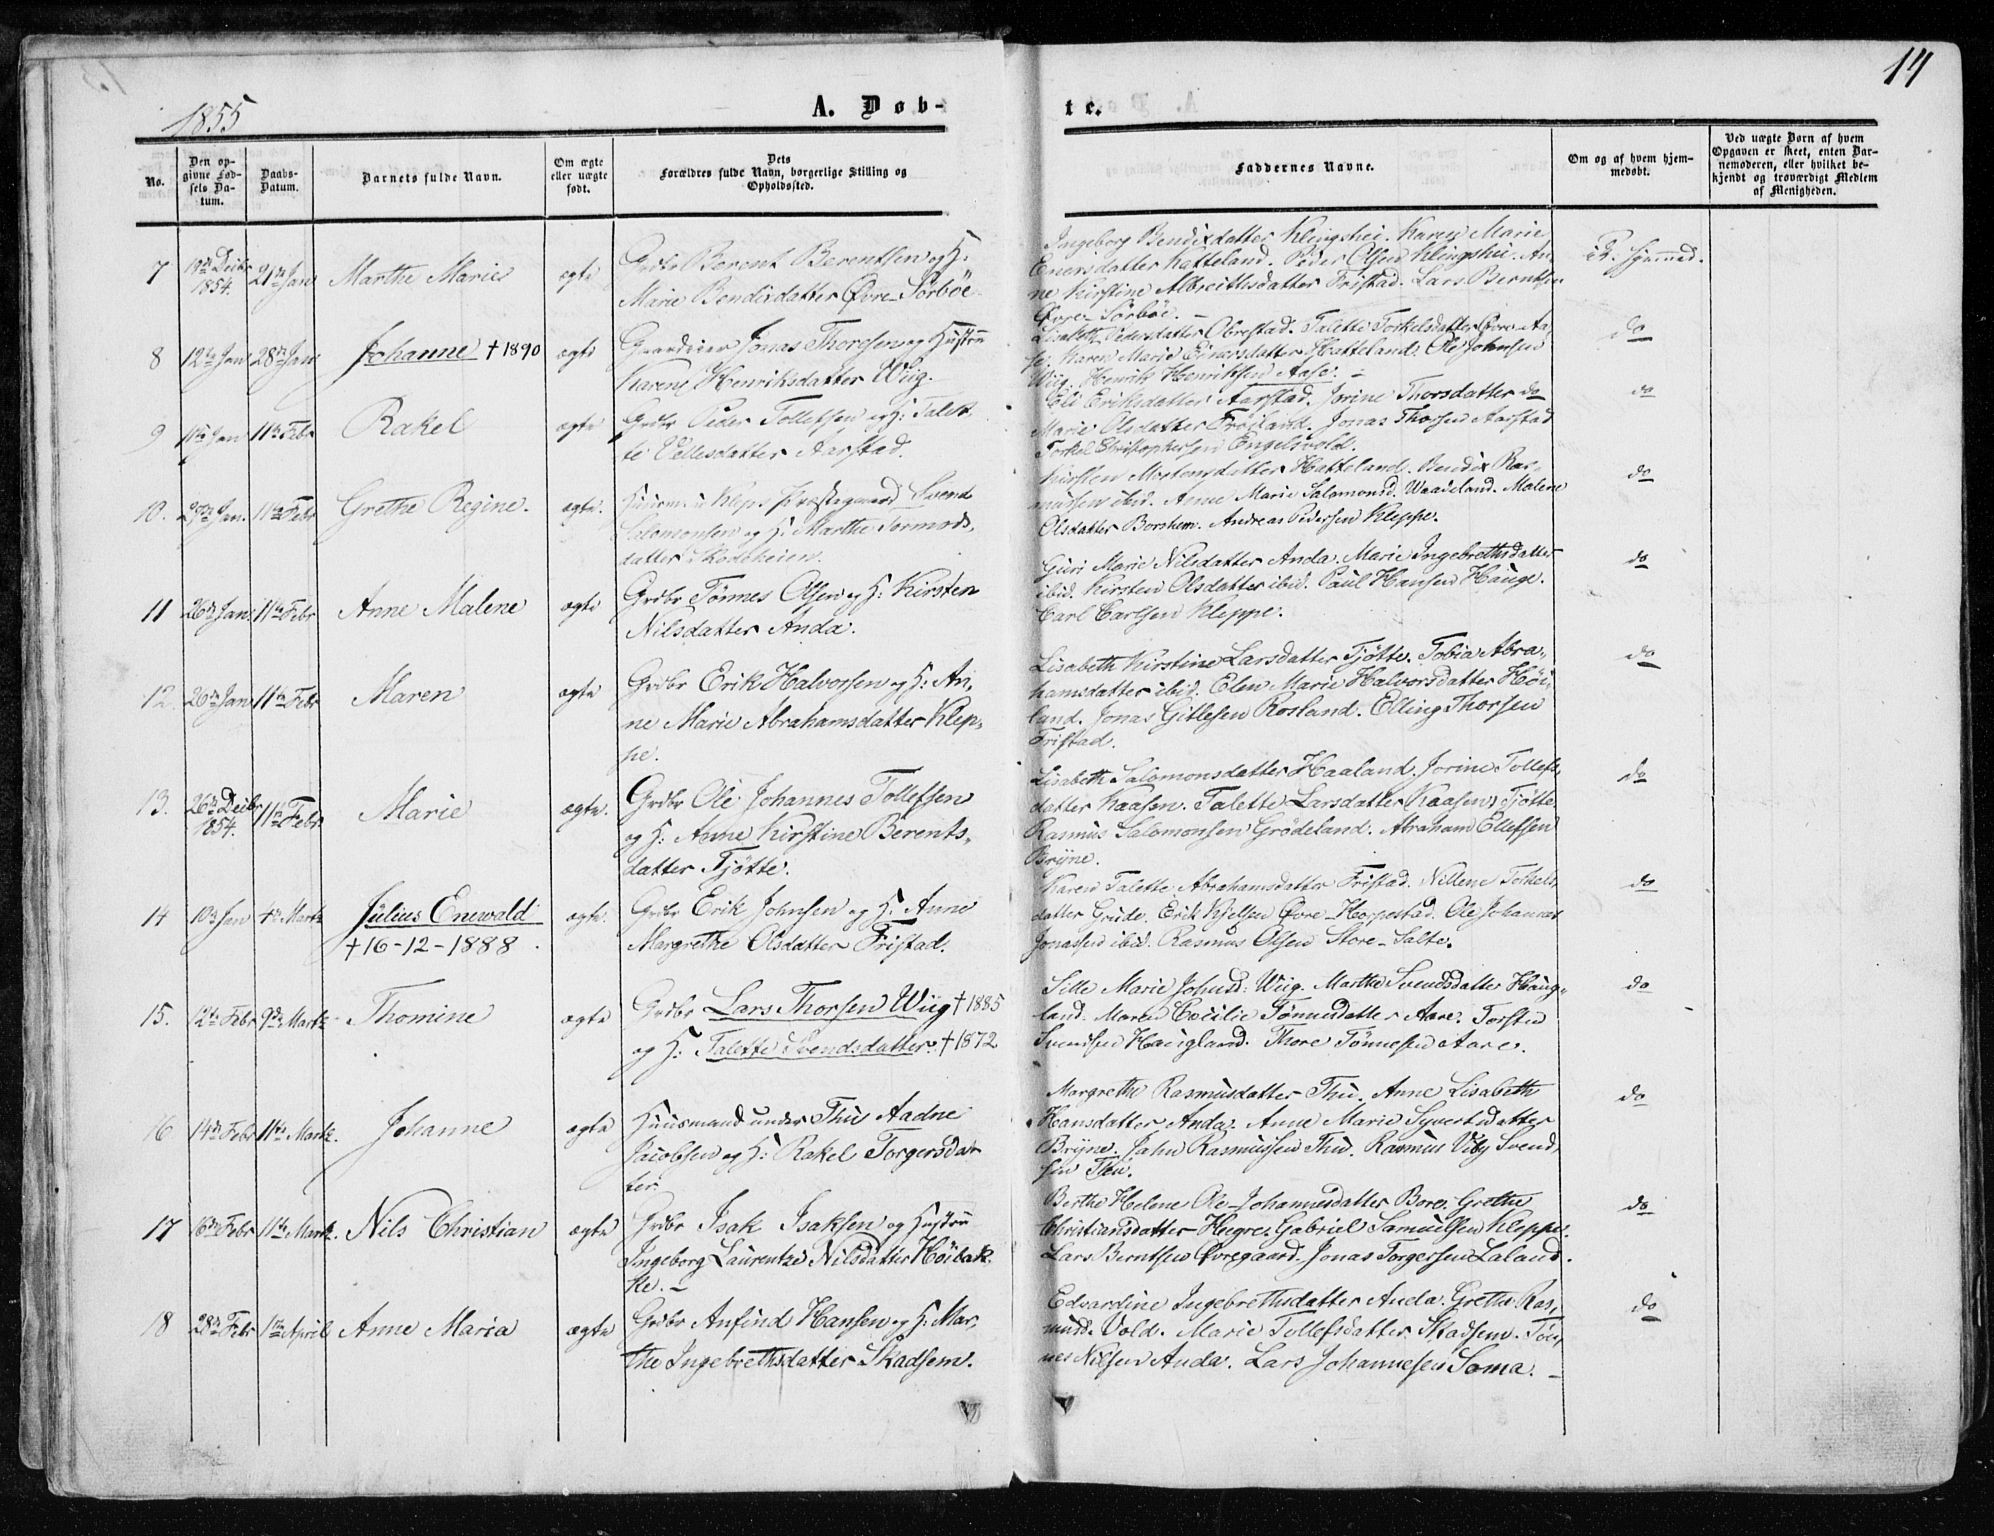 1855
A. Døb-
te.
14
No.
Den op-
givne Fød-
sels Da-
tum.
Daabs-
Datum.
Barnets fulde Navn.
Om ægte
eller uægte
født.
Dets
Forældres fulde Navn, borgerlige Stilling og
Opholdssted.
Faddernes Navne.
Om og af hvem hjem-
medøbt.
Ved uægte Børn af hvem
Opgaven er skeet, enten Bar-
nemoderen, eller hvilket be-
kjendt og troværdigt Medlem
af Menigheden.
7
Decbr
1854.
21de Jan
Marthe Marie
ægte
Grdbr Berent Berentsen og H:
Marie Bendixdatter Øvre-Sörböe
Ingeborg Bendixdatter Klingshei. Karen Marie
Enersdatter Hatteland. Peder Olsen Klingshei. An
ne Kirstine Albreithsdatter Fristad. Lars Berntsen
Øvre-Sörböe. -
8
12te Jan
28de Jan
Johanne † 1890
ægte
Jonas Thoresen og Hustru
Karen Henriksdatter Wiig.
Lisabeth Pedersdatter Obrestad. Talette Torkelsdatter Øvre-Aa,
se. Karen Marie Einarsdatter Hatteland. Ole Johnsen
Wiig. Henrik Henriksen Aase. -
do
9
11te Jan
11te Febr
Rakel
ægte
Grdbr Peder Tollefsen og H: Talet,
te Vellesdatter Aarstad.
Eli Eriksdatter Aarstad. Jorine Thorsdatter do
Marie Olsdatter Fröiland. Jonas Thorsen Aarstad
Torkel Christophersen Engelsvold.
do
10.
Jan.
11te Febr
Grethe Regine.
ægte.
Huusm. u Kleps Præstegaard Svend
Salomonsen og H: Marthe Tormods,
datter
Kirsten Mortensdatter Hatteland. Bendix Ras,
mussen ibid. Anne Marie Salomonsd. Waadeland. Malene
Olsdatter Borshem. Andreas Pedersen Kleppe.
do
11
26de Jan
11te Febr
Anne Malene
ægte
Grdbr Tönnes Olsen og H: Kirsten
Nilsdatter Anda.
Guri Marie Nilsdatter Anda. Marie Ingebrethsdatter
ibid. Kirsten Olsdatter ibid. Paul Hansen Hauge.
Carl Carlsen Kleppe.
do
12.
26de Jan
11te Febr
Maren
ægte
Grdbr Erik Halvorsen og H: An,
ne Marie Abrahamsdatter Klep,
pe.
Lisabeth Kirstine Larsdatter Tjötte. Tobia Abra,
hamsdatter ibid. Elen Marie Halvorsdatter Höi,
land. Jonas Gitlesen Rosland. Elling Thorsen
Fristad.
do
13.
26de Decbr
1854.
11te Febr
Marie
ægte.
Grdbr Ole Johannes Tollefsen
og H: Anne Kirstine Berents,
datter Tjötte.
Lisabeth Salomonsdatter Haaland. Jorine Tollefs,
datter Kaasen. Talette Larsdatter Kaasen, Tjötte
Rasmus Salomonsen Grödeland. Abraham Ellefsen
Bryne.
do
14
10de Jan
4de Marts
Julius Enewald
†16-12-1888.
ægte.
Grdbr Erik Johnsen og H: Anne
Margrethe Olsdatter Fristad.
Karen Talette Abrahamsdatter Fristad. Nillene Torkels,
datter Grude. Erik Kjelsen Øvre-Horpestad. Ole Johannes
Jonassen ibid. Rasmus Olsen Store-Salte.
do
15.
12te Febr
9de Marts
Thomine
ægte
Grdbr Lars Thorsen Wiig † 1885
og H: Talette Svendsdatter. † 1872
Sille Marie Johnsd: Wiig. Marthe Svendsdatter Haug,
land. Maren Cecilie Tönnesdatter Aare. Torsten
Svendsen Haugland. Thore Tönnesen Aare.
do
16
14de Febr
11te Marts.
Johanne
ægte
Huusmand under Thu Aadne
Jacobsen og H: Rakel Torgersdat
ter.
Margrethe Rasmusdatter Thu. Anne Lisabeth
Hansdatter Anda. Anne Marie Syvertsdatter
Bryne. Jahn Rasmussen Thu. Rasmus Svend,
sen Thu.
do
17
16de Febr
11te Marts.
Nils Christian
ægte
Grdbr Isak Isaksen og Hustru
Ingeborg Laurentze Nilsdatter Höibak
ke. -
Berthe Helene Ole-Johannesdatter Bore. Grethe
Christiansdatter Hegre. Gabriel Samuelsen Kleppe.
Lars Berntsen Øvregaard. Jonas Torgersen Laland.
do
18
28de Febr
1ste April
Anne Maria
ægte
Grdbr Anfind Hansen og H: Mar,
the Ingebrethsdatter Skadsem.
Edvardine Ingebrethsdatter Anda. Grethe Ras,
musd. Vold. Marie Tollefsdatter Skadsem. Tön,
nes Nilsen Anda. Lars Johannesen Soma. -
do